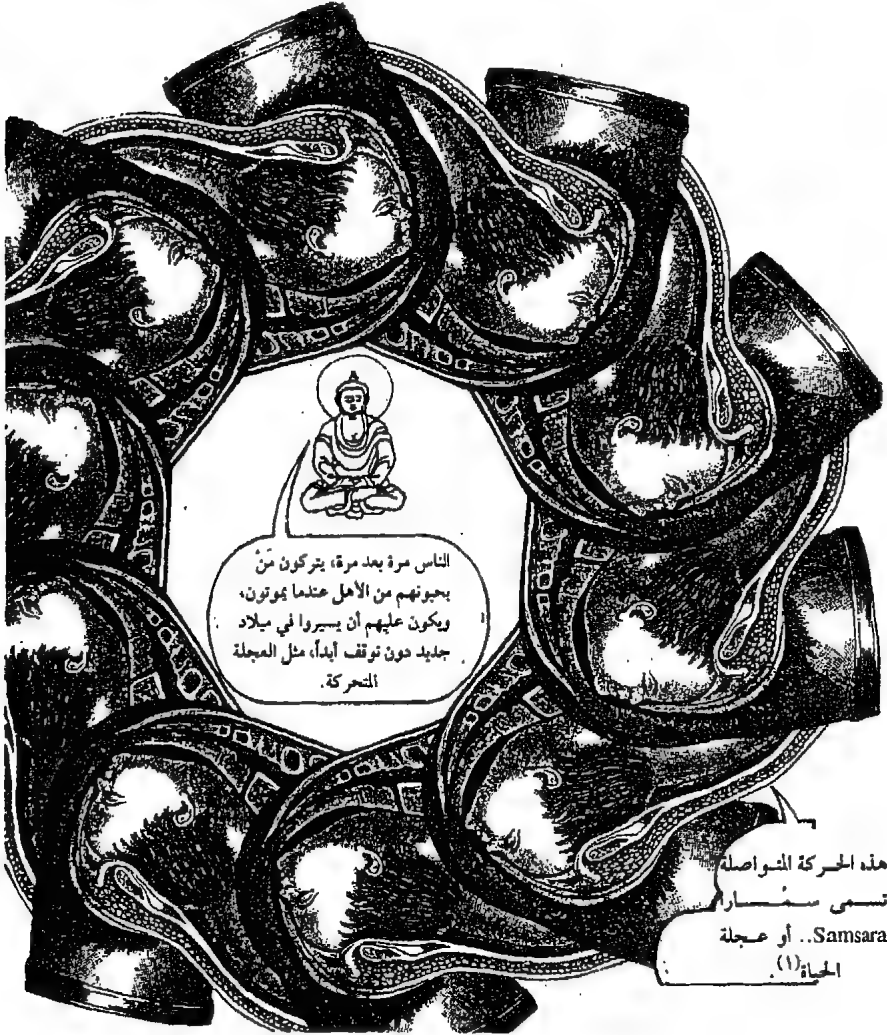 الناس مرة بعد مرة، يتركون مَنْ
يحبونهم من الأهل عندما يموتون،
ويكون عليهم أن يسيروا في ميلاد
جديد دون توقف أبداً، مثل العجلة
المتحركة.
هذه الحركة المتواصلة
تسمى سمْسارا
Samsara.. أو عجلة
الحياة(١).